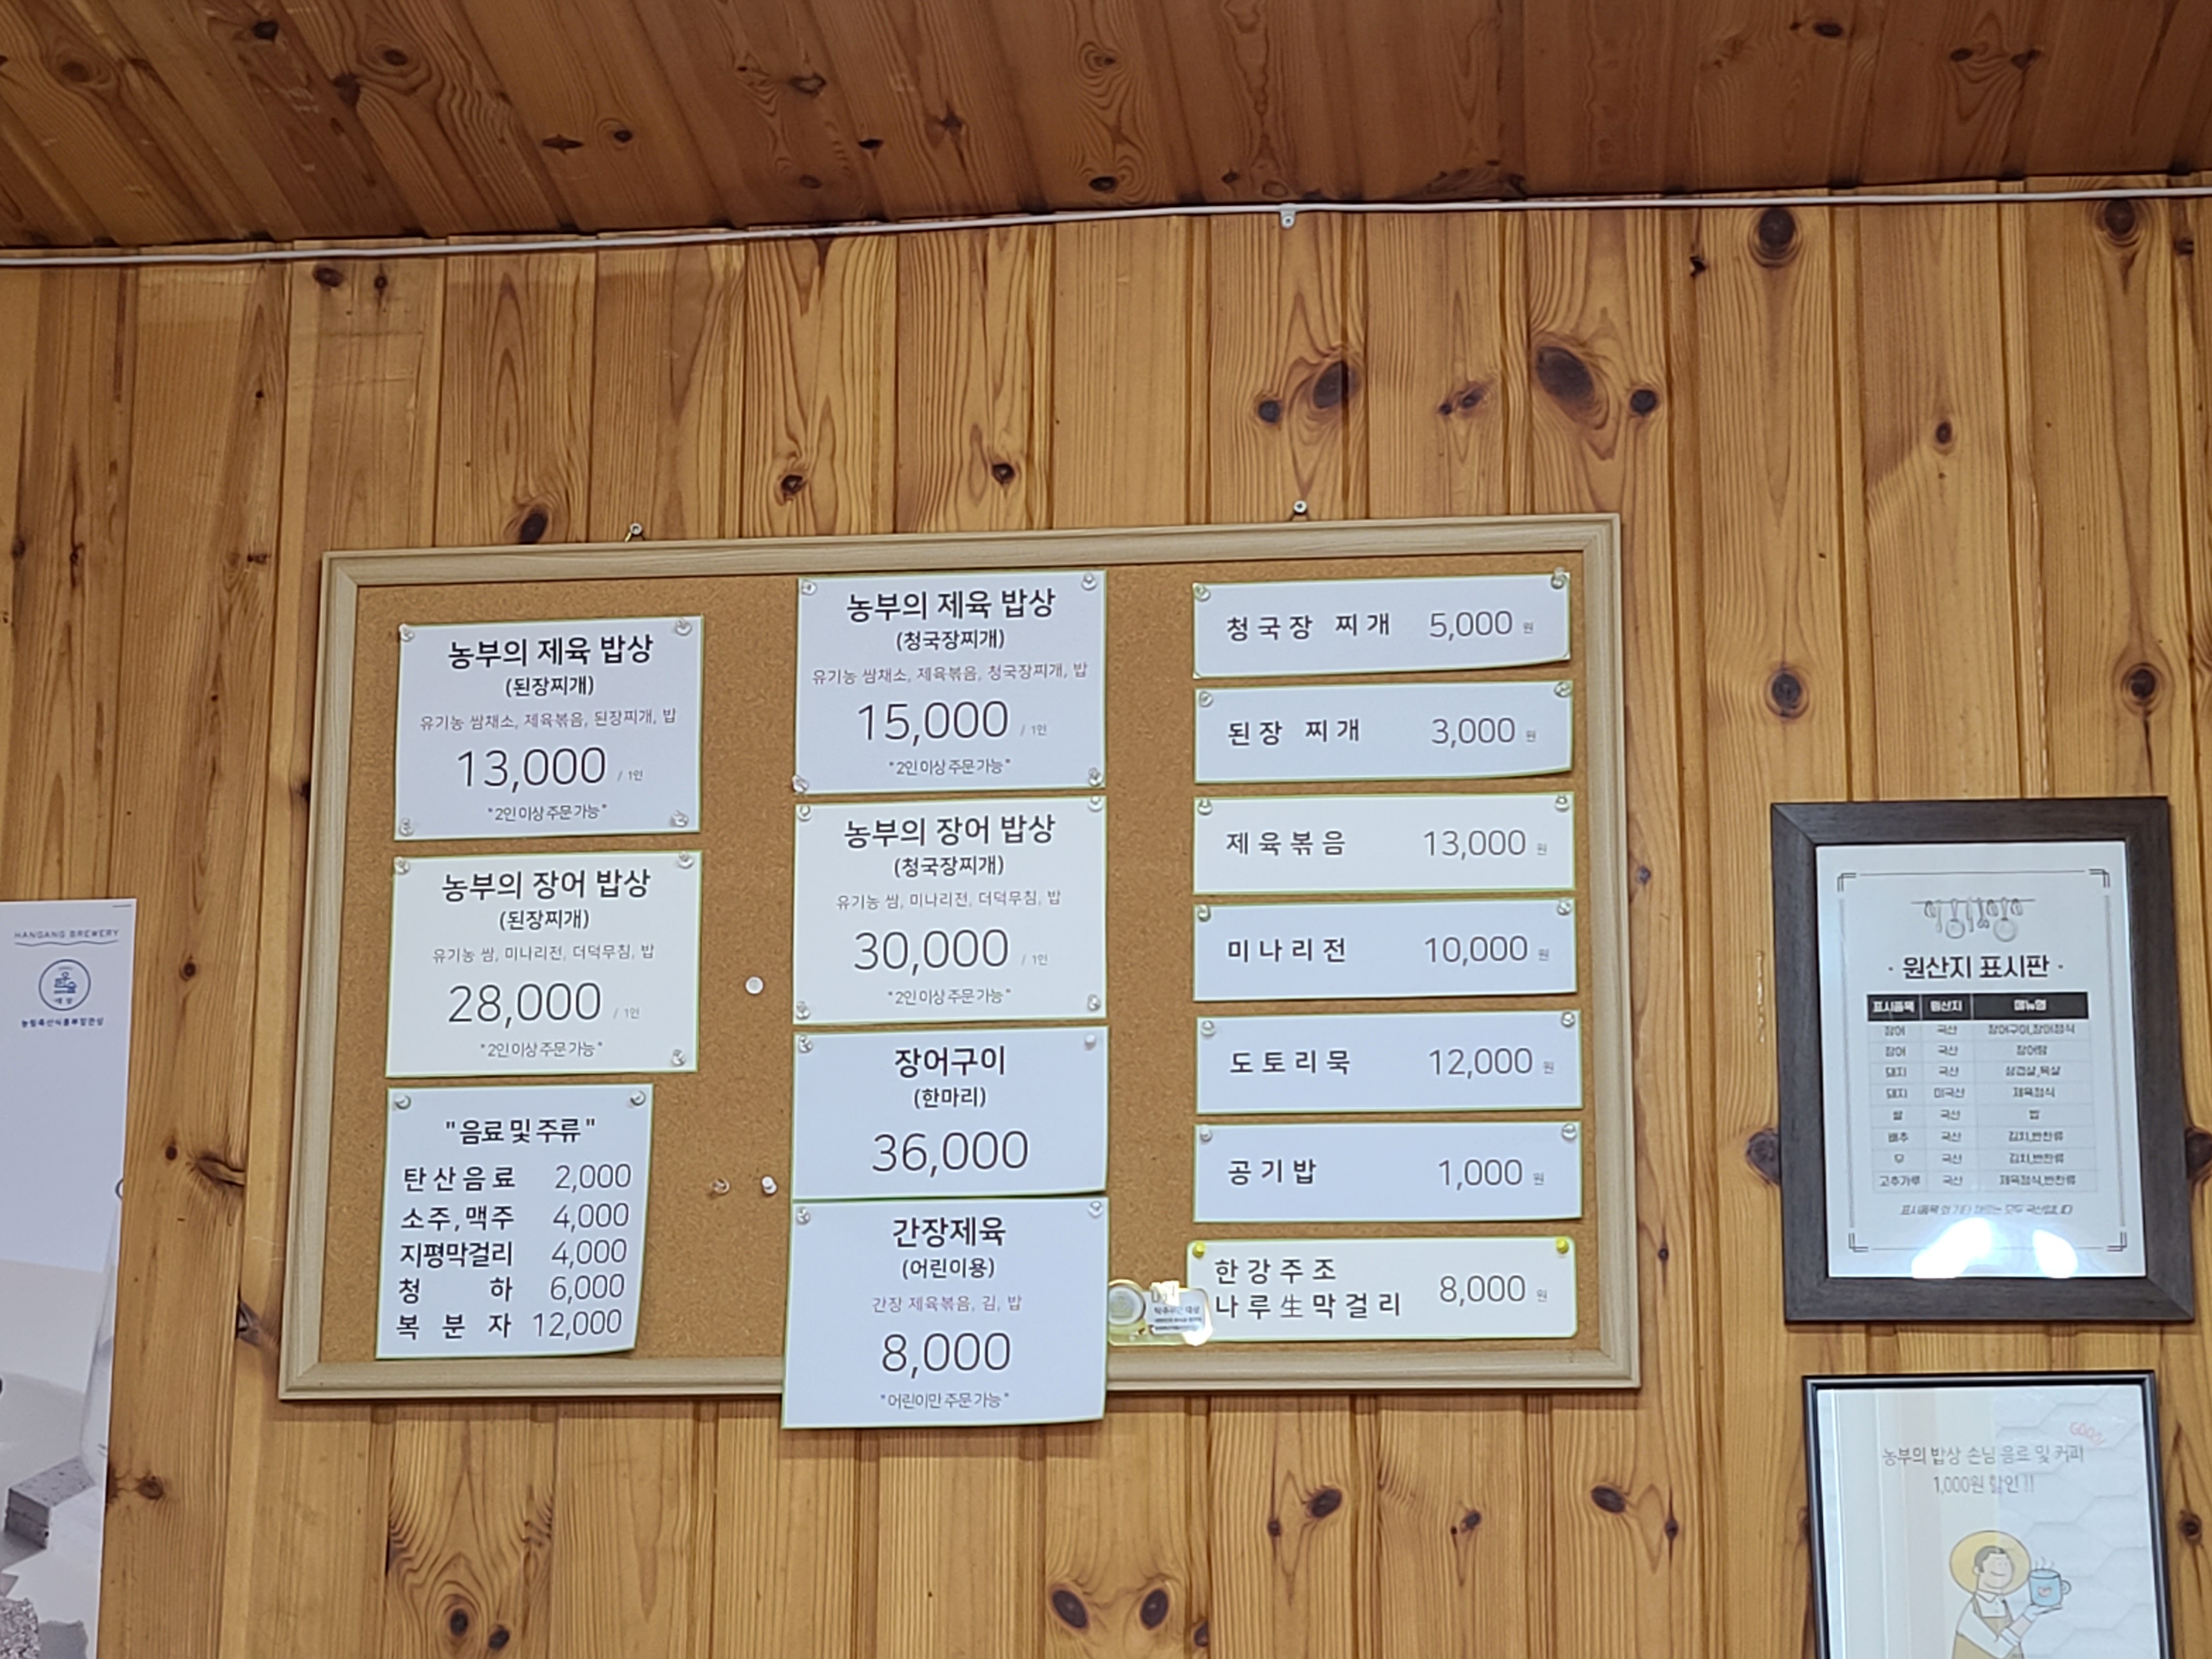 농부의 제육 밥상
(된장찌개)
유기농 쌈채소, 제육볶음, 된장찌개, 밥
13,000 / 1인
"2인 이상 주문 가능"
농부의 장어 밥상
(된장찌개)
유기농 쌈, 미나리전, 더덕무침, 밥
28,000 / 1인
"2인 이상 주문 가능"
"음료 및 주류"
탄산음료 2,000
소주, 맥주 4,000
지평막걸리 4,000
청하 6,000
복분자 12,000
농부의 제육 밥상
(청국장찌개)
유기농 쌈채소, 제육볶음, 청국장찌개, 밥
15,000 / 1인
"2인 이상 주문 가능"
농부의 장어 밥상
(청국장찌개)
유기농 쌈, 미나리전, 더덕무침, 밥
30,000 / 1인
"2인 이상 주문 가능"
장어구이
(한마리)
36,000
간장제육
(어린이용)
간장 제육볶음, 김, 밥
8,000
"어린이만 주문 가능"
청국장 찌개 5,000 원
된장 찌개 3,000 원
제육볶음 13,000 원
미나리전 10,000 원
도토리묵 12,000 원
공기밥 1,000 원
한강주조
나루生막걸리 8,000 원
HANGANG BREWERY
대상
농림축산식품부장관상
· 원산지 표시판 ·
표시품목 원산지 메뉴명
장어 국산 장어구이,장어정식
장어 국산 장어탕
돼지 국산 삼겹살,목살
돼지 미국산 제육정식
쌀 국산 밥
배추 국산 김치,반찬류
무 국산 김치,반찬류
고추가루 국산 제육정식,반찬류
표시품목 외 기타 재료는 모두 국산입니다
GOOD!
농부의 밥상 손님 음료 및 커피
1,000원 할인 !!